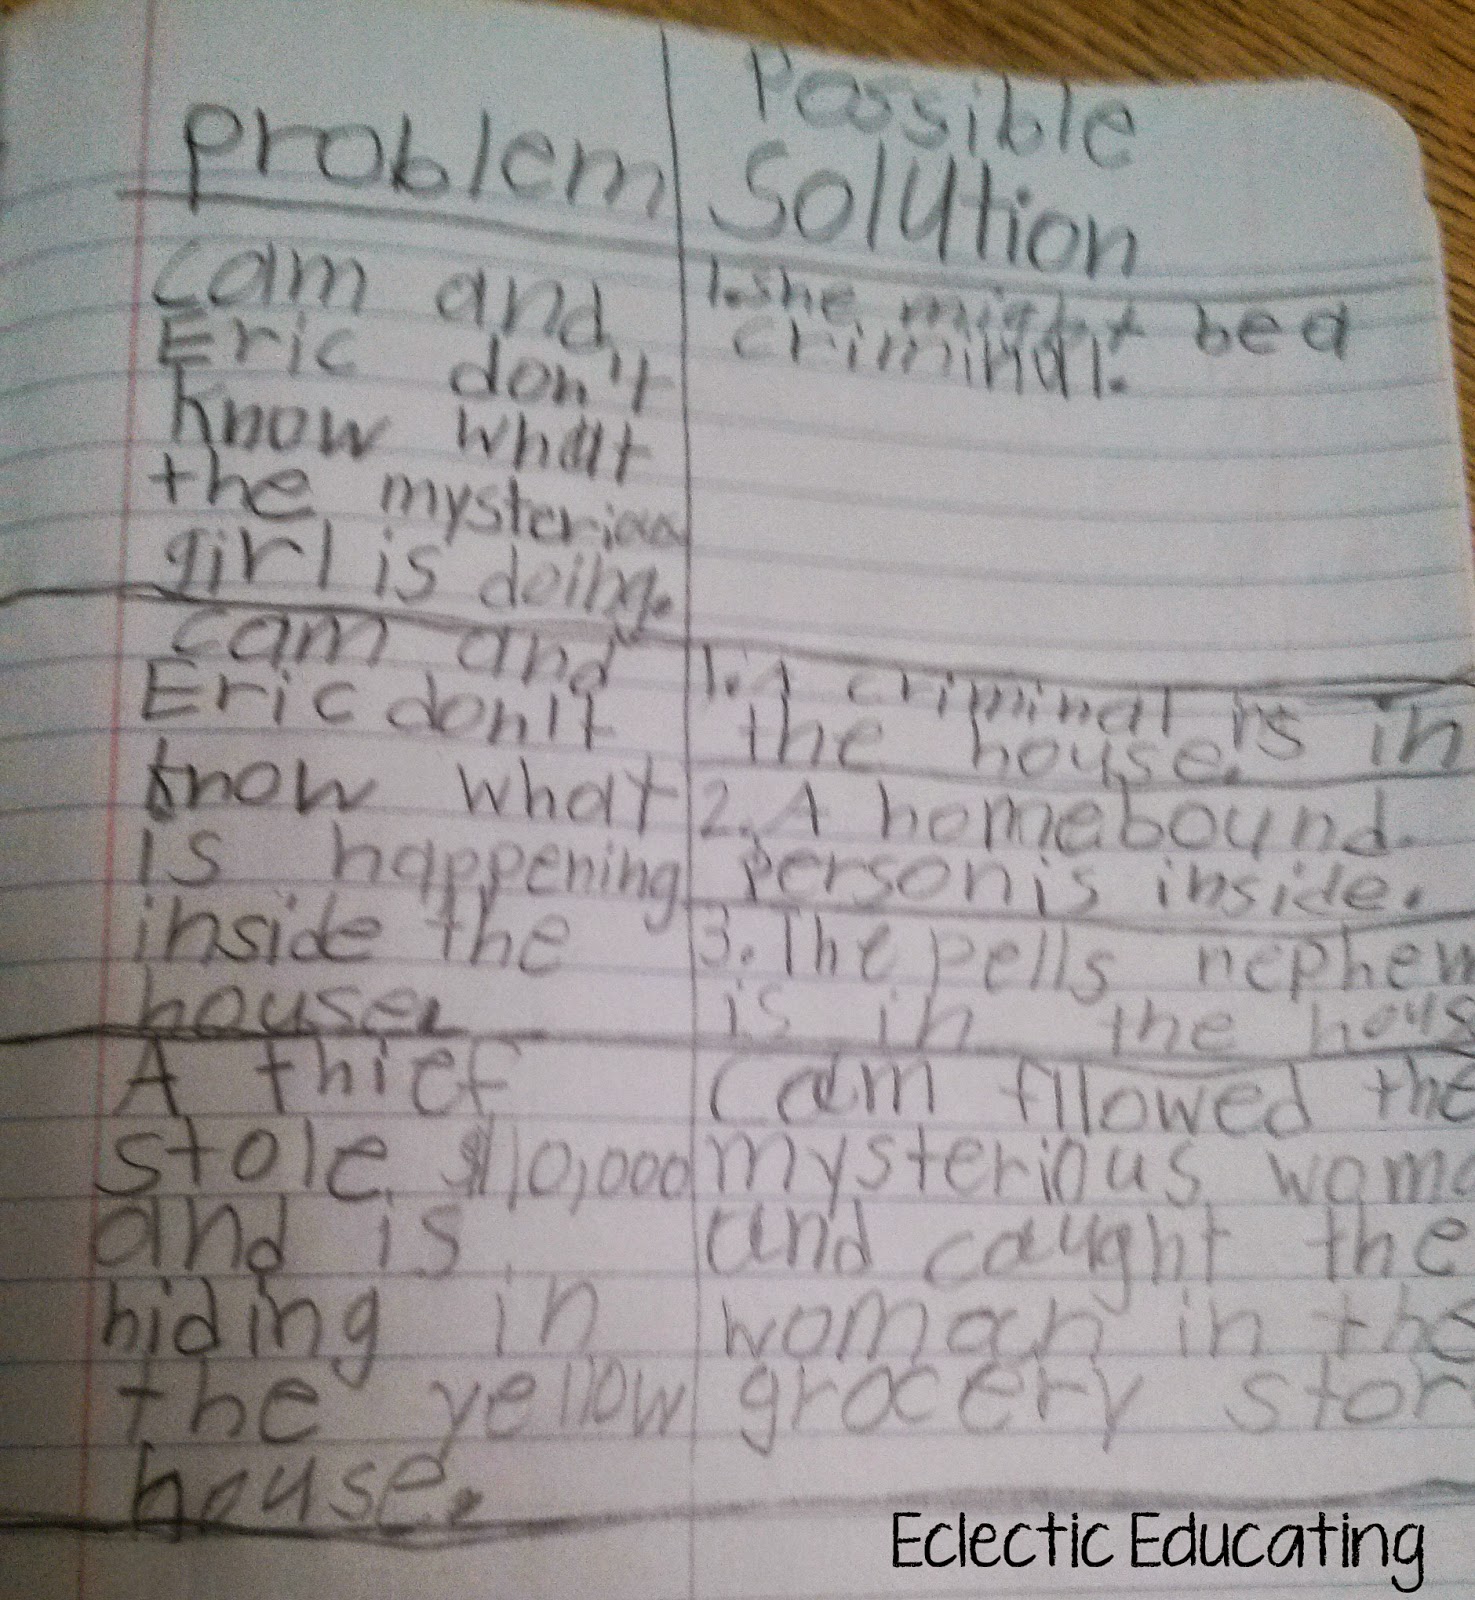 problem
Possible
Solution
Cam and
Eric don't
know what
the
girl is doing.
1. she might be a
criminal.
Cam and
Eric don't
know what
is happening
inside the
house.
1. A criminal is in
the house.
2. A homebound
person is inside.
3. The pells nephew
is in the hous
A thief
stole $10,000
and is
hiding in
the yellow
house.
Cam fllowed the
mysterious woma
and caught the
woman in the
grocery stor
Eclectic Educating